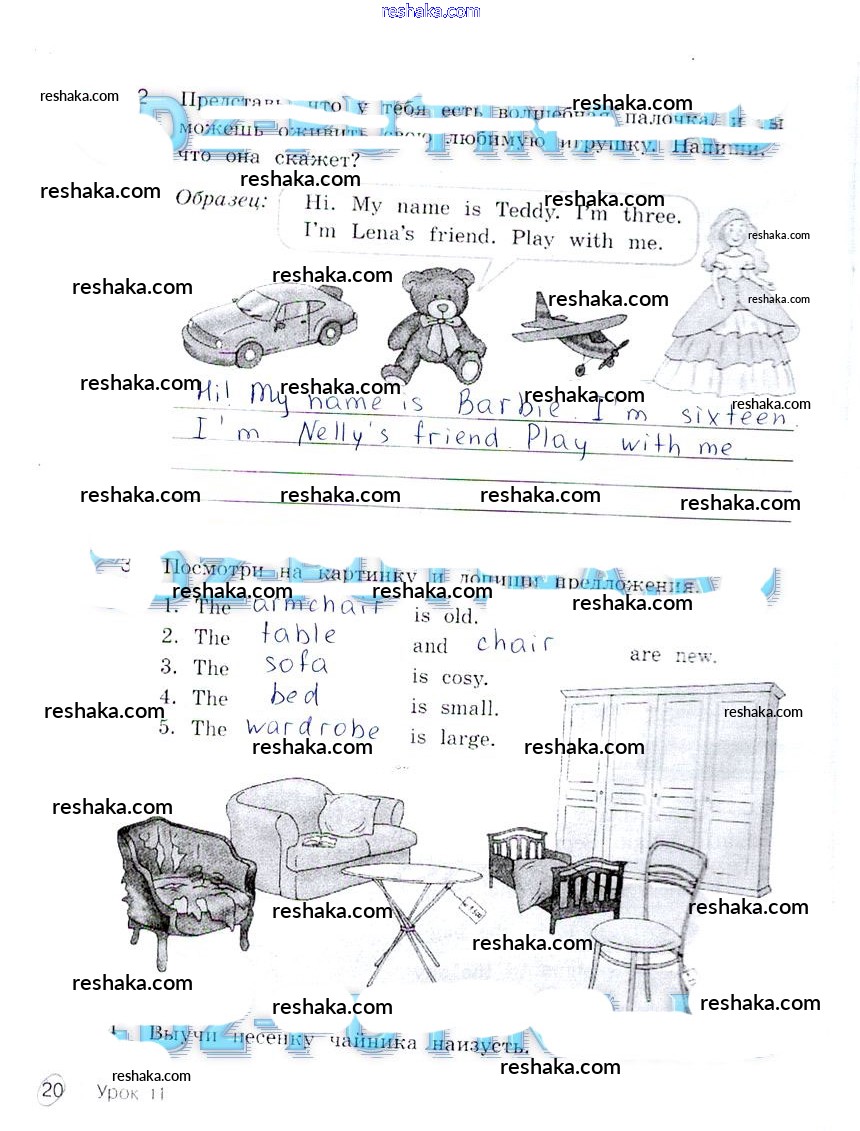 reshaka.com
reshaka.com
2 Представь, что у тебя есть волшебная палочка и ты
reshaka.com
можешь оживить свою любимую игрушку. Напиши,
что она скажет?
reshaka.com reshaka.com reshaka.com
Образец: Hi. My name is Teddy. I'm three.
I'm Lena's friend. Play with me.
reshaka.com
reshaka.com reshaka.com reshaka.com reshaka.com
reshaka.com reshaka.com reshaka.com reshaka.com
Hi! My name is Barbie. I'm sixteen.
I'm Nelly's friend. Play with me.
reshaka.com reshaka.com reshaka.com reshaka.com
3 Посмотри на картинку и допиши предложения.
reshaka.com reshaka.com reshaka.com
1. The armchair is old.
2. The table and chair are new.
3. The sofa is cosy.
4. The bed is small.
5. The wardrobe is large.
reshaka.com reshaka.com
reshaka.com reshaka.com
reshaka.com
reshaka.com reshaka.com
reshaka.com
reshaka.com reshaka.com reshaka.com
Выучи песенку чайника наизусть.
reshaka.com reshaka.com
20 Урок 11